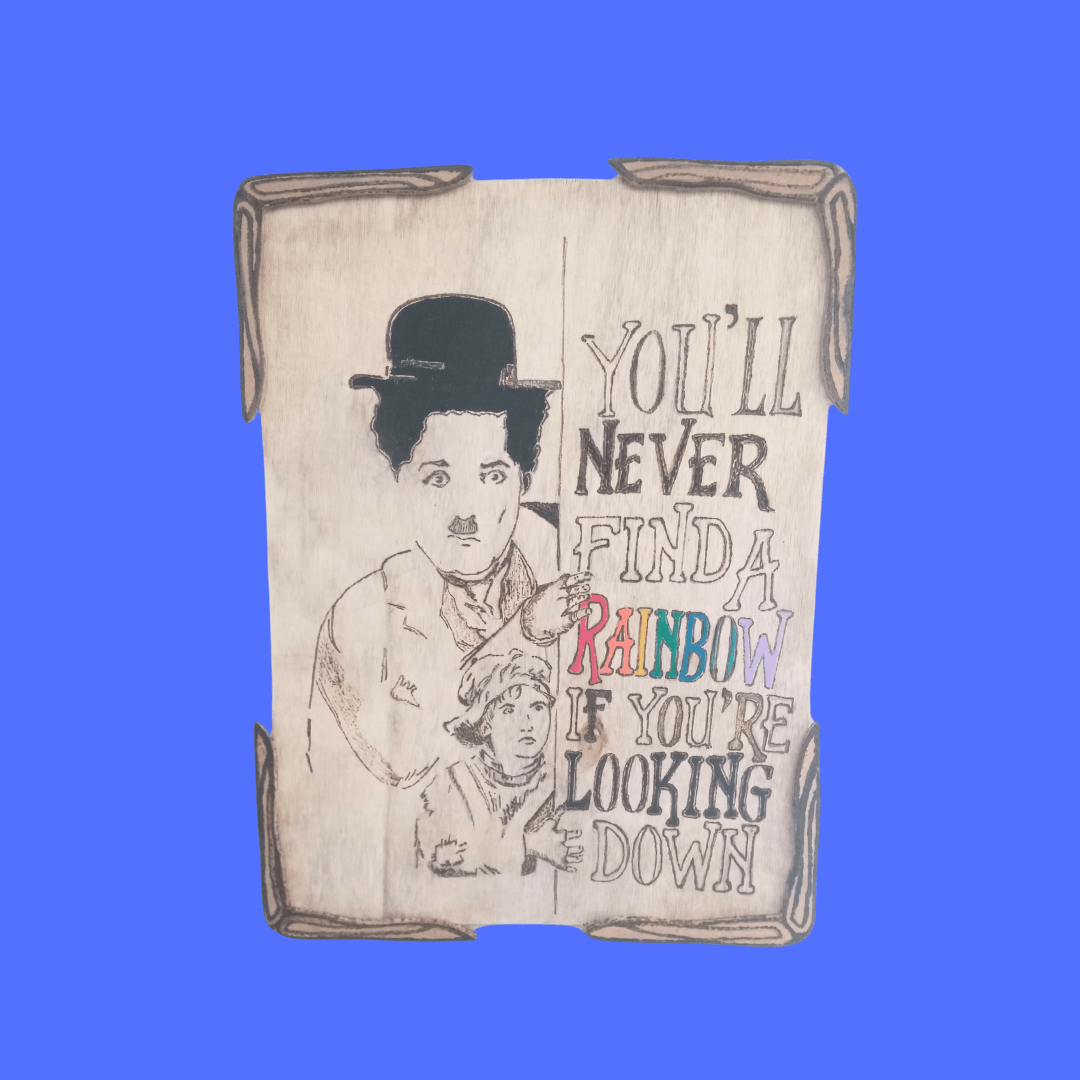 YOU'LL
NEVER
FIND A
RAINBOW
IF YOU'RE
LOOKING
DOWN